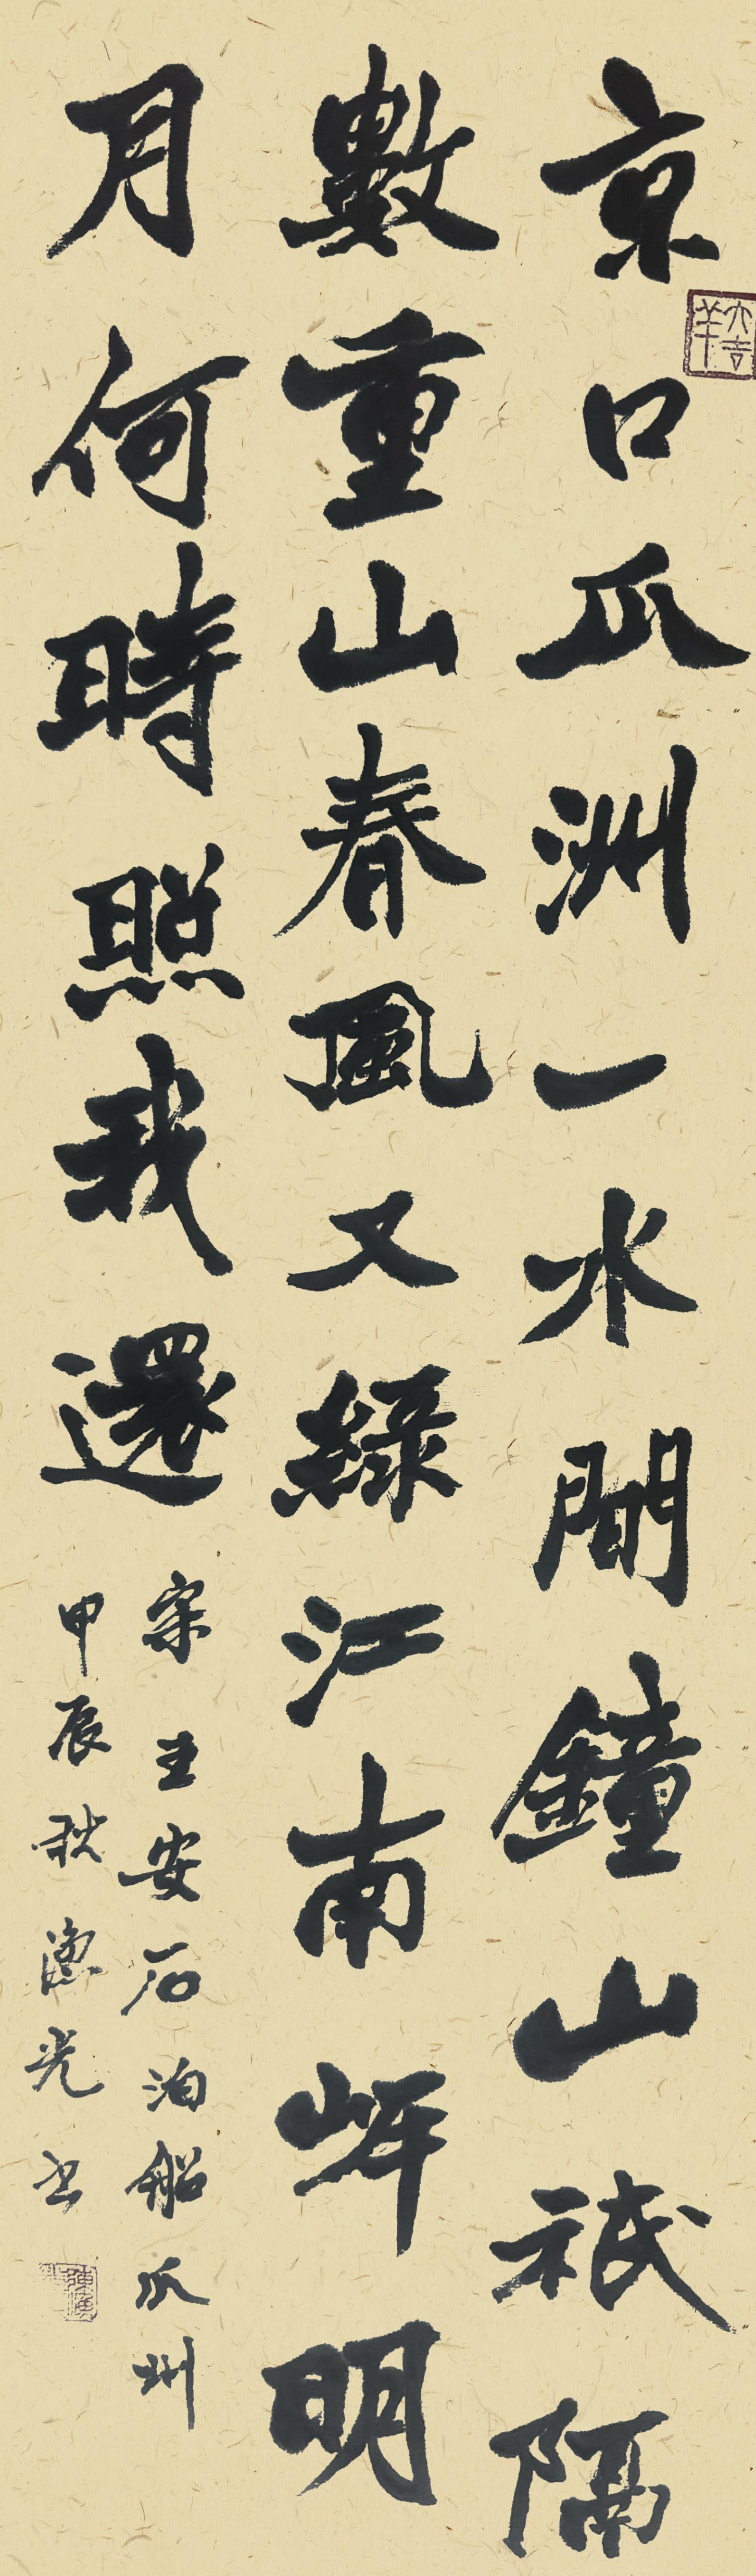 京口瓜洲一水間鐘山祇隔
數重山春風又綠江南岸明
月何時照我還
宋王安石泊船瓜州
甲辰秋漁光书
大吉羊